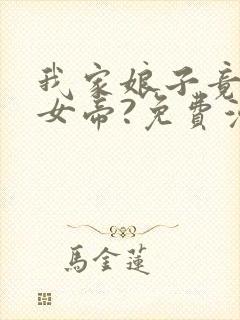 我家娘子竟
女帝?免費
馬金蓮